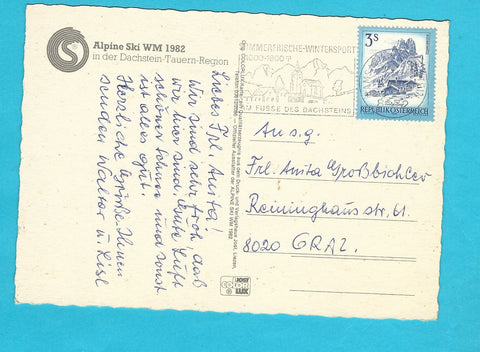 Alpine Ski WM 1982
in der Dachstein-Tauern-Region
SOMMERFRISCHE-WINTERSPORT
AM FUSSE DES DACHSTEINS
3S
REPUBLIK ÖSTERREICH
Liebes Frl. Anita!
Wir sind sehr froh, daß
wir hier sind. Gute Luft
schöner Schnee und sonst
ist alles gut.
Herzliche Grüße Ihnen
senden Walter u. Lisl
An s.g.
Frl. Anita Großbichler
Reininghausstr. 61
8020 GRAZ.